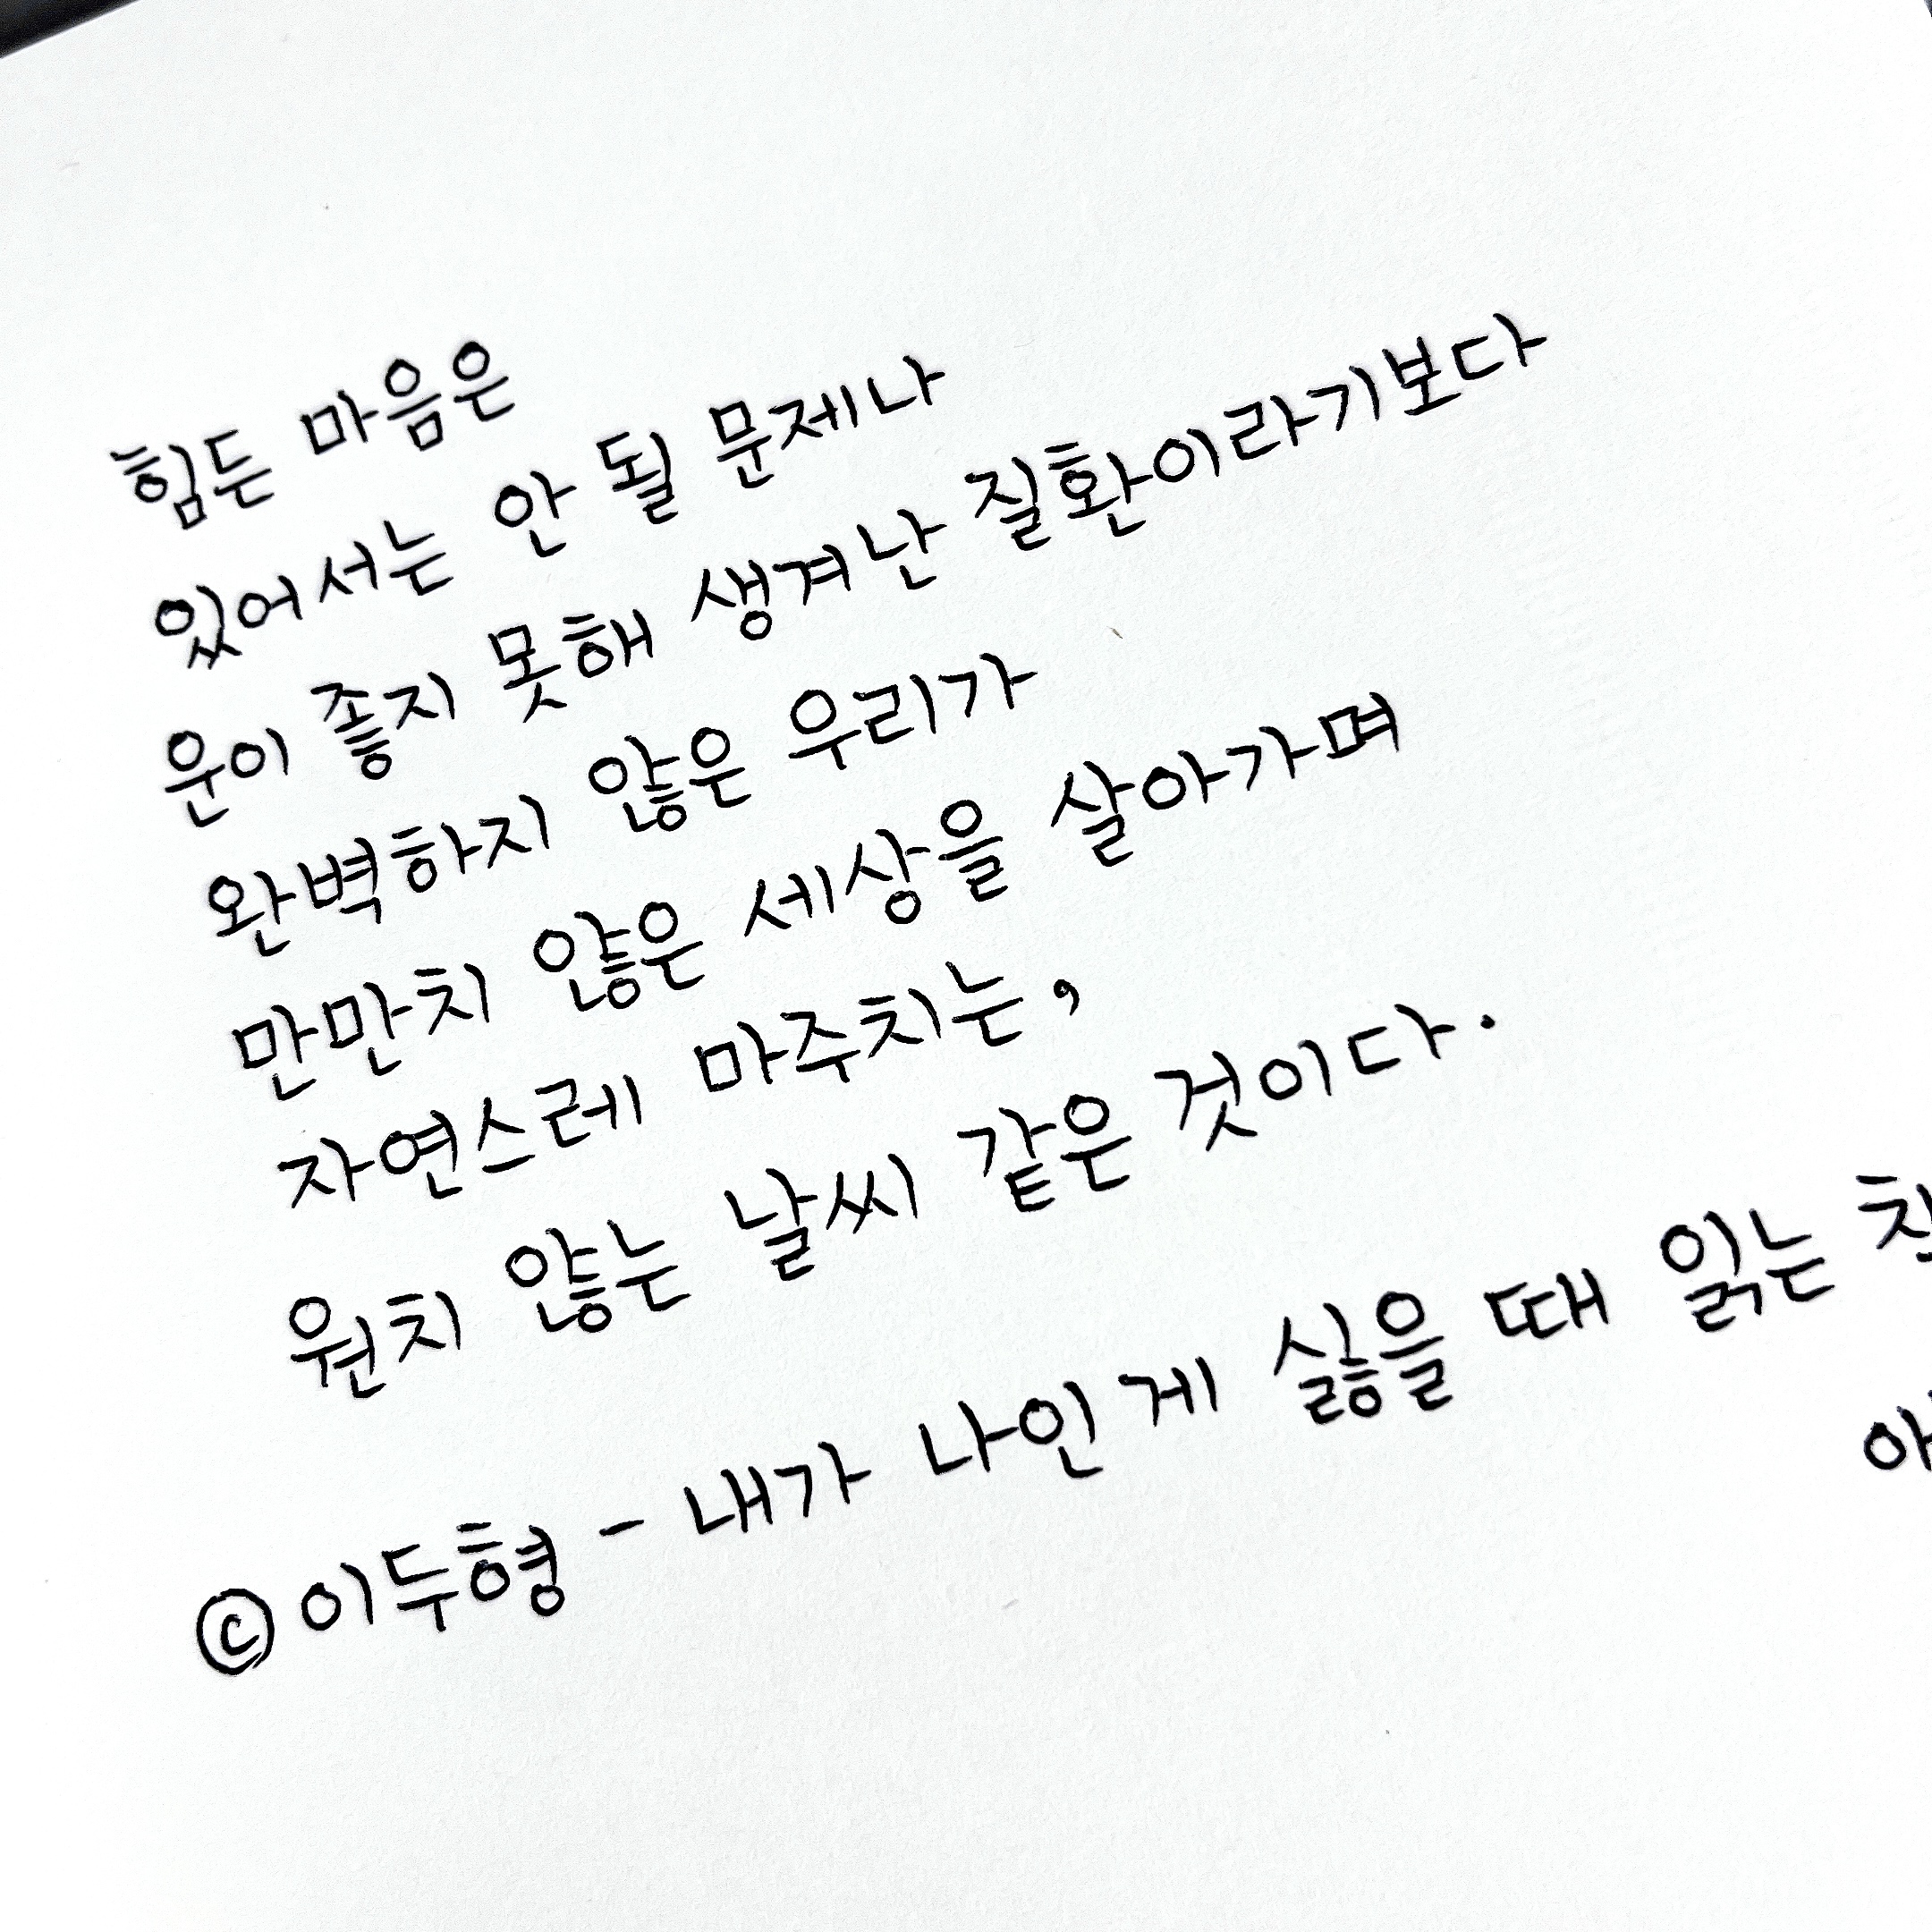 힘든 마음은
있어서는 안 될 문제나
운이 좋지 못해 생겨난 질환이라기보다
완벽하지 않은 우리가
만만치 않은 세상을 살아가며
자연스레 마주치는,
원치 않는 날씨 같은 것이다.
ⓒ이두형 - 내가 나인게 싫을 때 읽는